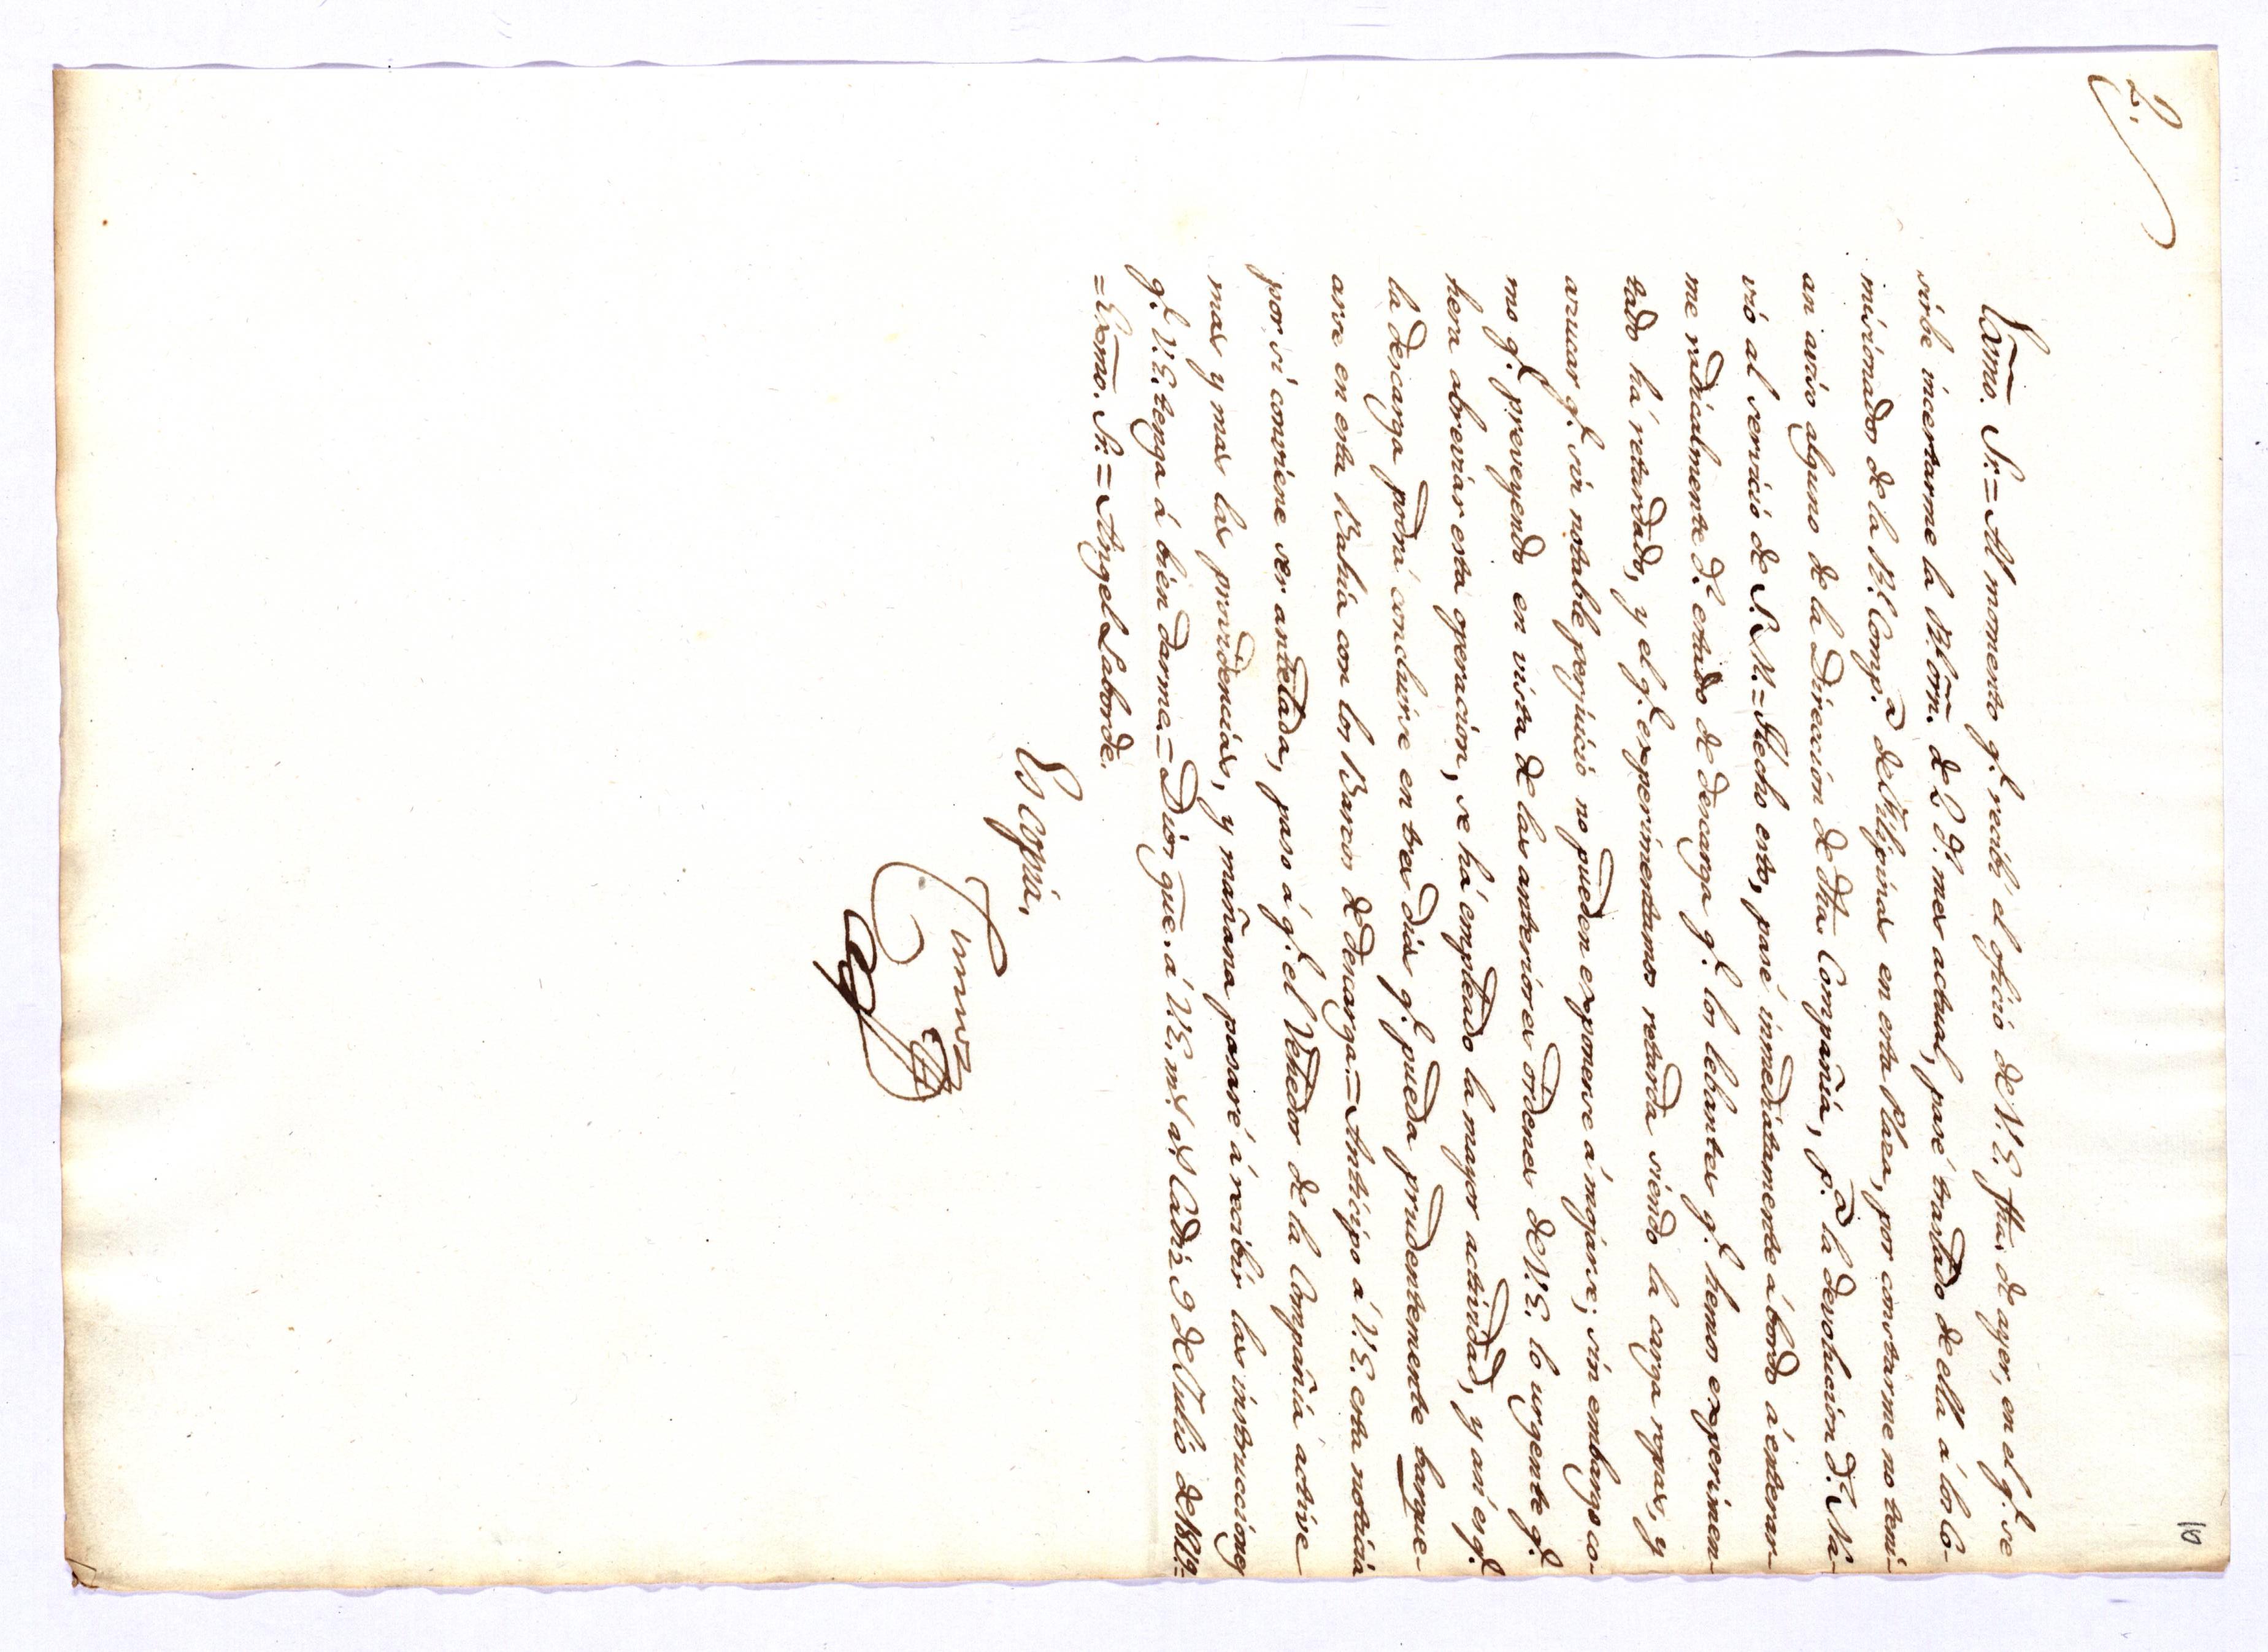 2.
10
Exmõ. Sr. = Al momento q.e recibí el oficio de V.E. fha. de ayer, en el q.e se
sirbe incertarme la Rl. orñ. de 2 dl. mes actual, pasé traslado de ella á los Co-
misionados de la Rl. Comp.a de Filipinas en esta Plaza, por constarme no tení-
an aviso alguno de la Direccion de dha. Compañia, p.a la devolucion dl. Na-
vio al servicio de S.M. = Hecho esto, pasé inmediatamente á bordo á enterar-
me radicalmente dl. estado de descarga q.e los lebantes q.e hemos experimen-
tado há retardado, y el q.e experimentamos retarda siendo la carga ropas, y
azucar q.e sin notable perjuicio no pueden exponerse á mojarse; sin embargo co-
mo q.e preveyendo en vista de las anteriores ordenes de V.E. lo urgente q.e
hera abreviar esta operacion, se há empleado la mayor actividad, y asi es q.e
la descarga podrá concluirse en tres dias q.e pueda prudentemente barque-
arse en esta Bahia con los Barcos de descarga. = Anticipo á V.E. esta noticia
por si conviene ser antelada, paso á q.e el Vehedor de la Compañia active
mas y mas las providencias, y mañana pasaré á recibir las instrucciones
q.e V.E. tenga á bien darme. = Dios gue. á V.E. m.s a.s Cadiz 9 de Julio de 1819.
= Exmõ. Sr. = Angel Laborde.
Es copia,